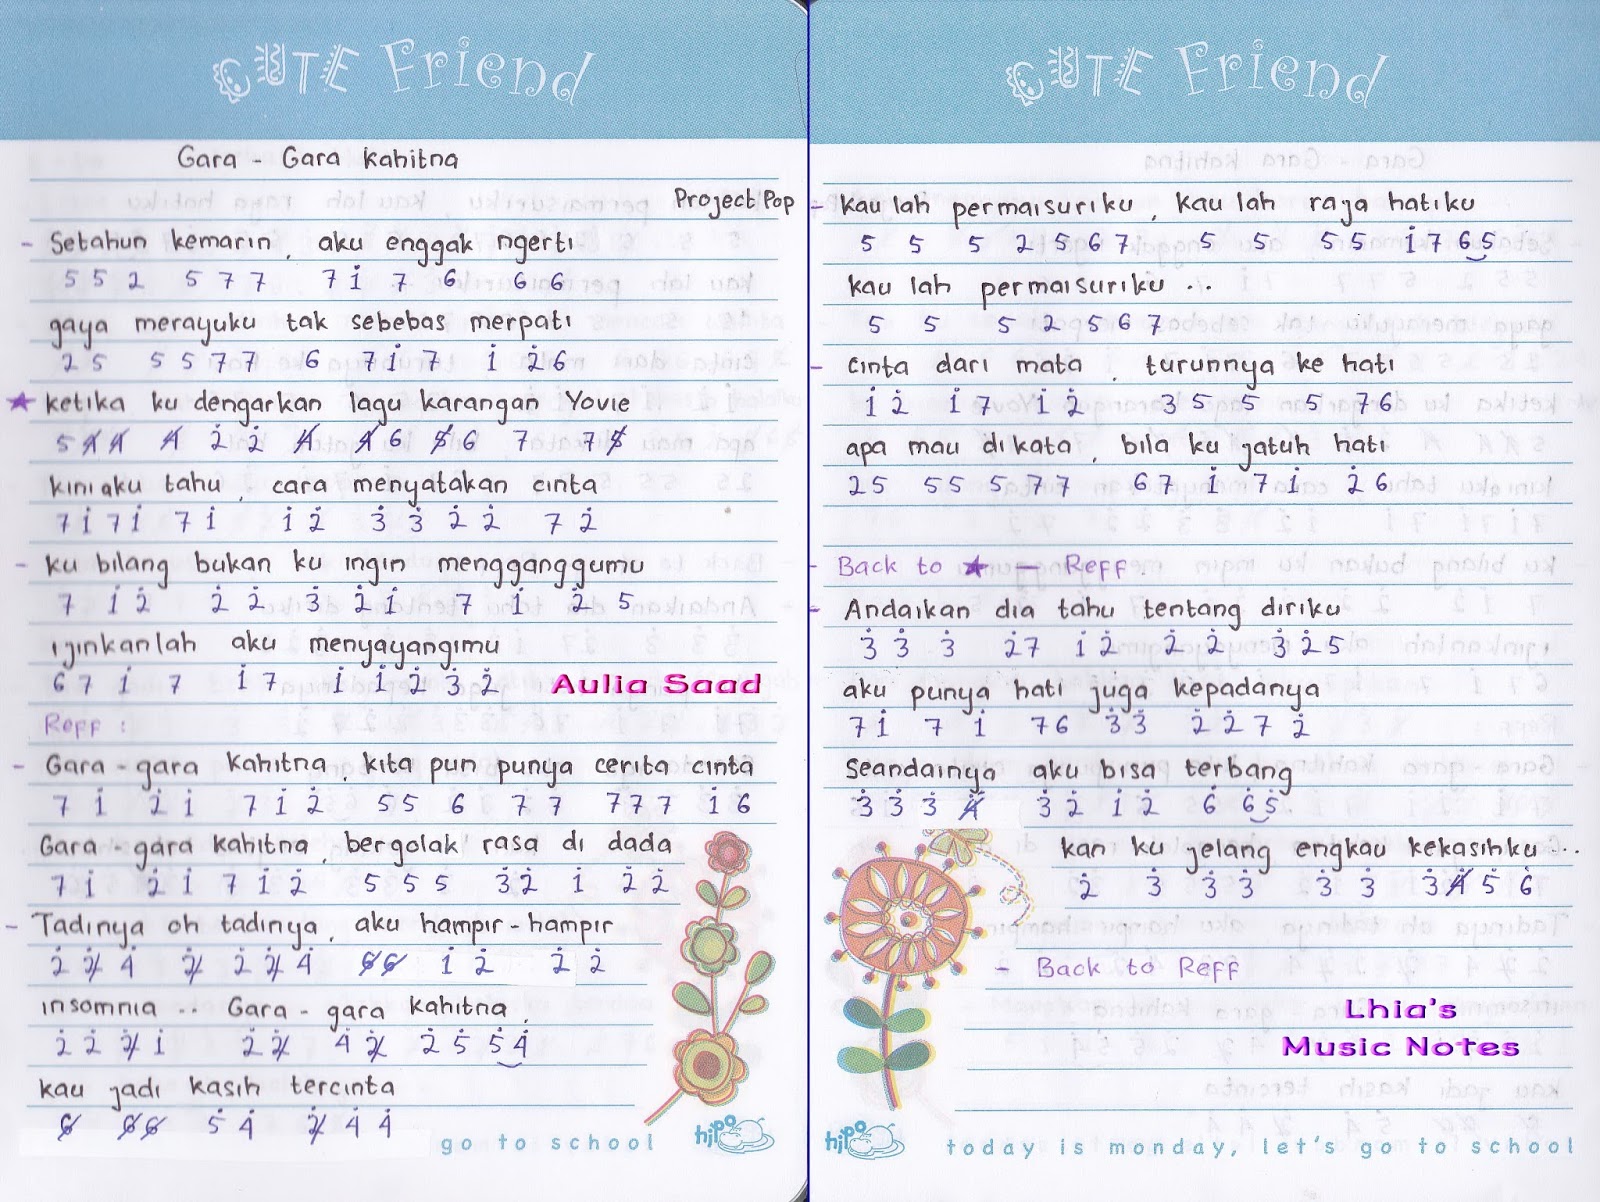 CUTE Friend
Gara - Gara Kahitna
Project Pop
- Setahun kemarin, aku enggak ngerti
5 5 2 5 7 7 7 1̇ 7 6 6 6
gaya merayuku tak sebebas merpati
2 5 5 5 7 7 6 7 1̇ 7 1̇ 2̇ 6
★ ketika ku dengarkan lagu karangan Yovie
5 4̸ 4̸ 4̸ 2̇ 2̇ 4̸ 4̸ 6 5̸ 6 7 7 5̸
kini aku tahu, cara menyatakan cinta
7 1̇ 7 1̇ 7 1̇ 1̇ 2̇ 3̇ 3̇ 2̇ 2̇ 7 2̇
- ku bilang bukan ku ingin mengganggumu
7 1̇ 2̇ 2̇ 2̇ 3̇ 2̇ 1̇ 7 1̇ 2̇ 5
ijinkanlah aku menyayangimu
6 7 1̇ 7 1̇ 7 1̇ 1̇ 2̇ 3̇ 2̇
Aulia Saad
Reff :
- Gara - gara Kahitna, kita pun punya cerita cinta
7 1̇ 2̇ 1̇ 7 1̇ 2̇ 5 5 6 7 7 7 7 7 1̇ 6
Gara - gara kahitna, bergolak rasa di dada
7 1̇ 2̇ 1̇ 7 1̇ 2̇ 5 5 5 3̇ 2̇ 1̇ 2̇ 2̇
- Tadinya oh tadinya, aku hampir - hampir
2̇ 2̸̇ 4̇ 2̸̇ 2̇ 2̸̇ 4̇ 6̸ 6̸ 1̇ 2̇ 2̇ 2̇
insomnia .. Gara - gara kahitna,
2̇ 2̇ 2̸̇ 1̇ 2̇ 2̸̇ 4̇ 2̸̇ 2̇ 5̇ 5̇ 4̇
kau jadi kasih tercinta
6̸ 6̸ 6̸ 5̇ 4̇ 2̸̇ 4̇ 4̇
go to school
hipo
CUTE Friend
- kau lah permaisuriku, kau lah raja hatiku
5 5 5 2 5 6 7 5 5 5 5 1̇ 7 6 5
kau lah permaisuriku ...
5 5 5 2 5 6 7
- cinta dari mata, turunnya ke hati
1̇ 2̇ 1̇ 7 1̇ 2̇ 3 5 5 5 7 6
apa mau dikata, bila ku jatuh hati
2 5 5 5 5 7 7 6 7 1̇ 7 1̇ 2̇ 6
- Back to ★ — Reff.
- Andaikan dia tahu tentang diriku
3̇ 3̇ 3̇ 2̇ 7 1̇ 2̇ 2̇ 2̇ 3̇ 2̇ 5
aku punya hati juga kepadanya
7 1̇ 7 1̇ 7 6 3̇ 3̇ 2̇ 2̇ 7 2̇
Seandainya aku bisa terbang
3̇ 3̇ 3̇ 4̸̇ 3̇ 2̇ 1̇ 2̇ 6̇ 6̇ 5̇
kan ku jelang engkau kekasihku ..
2̇ 3̇ 3̇ 3̇ 3̇ 3̇ 3̇ 4̸̇ 5̇ 6̇
- Back to Reff
Lhia's
Music Notes
hipo
today is monday, let's go to school